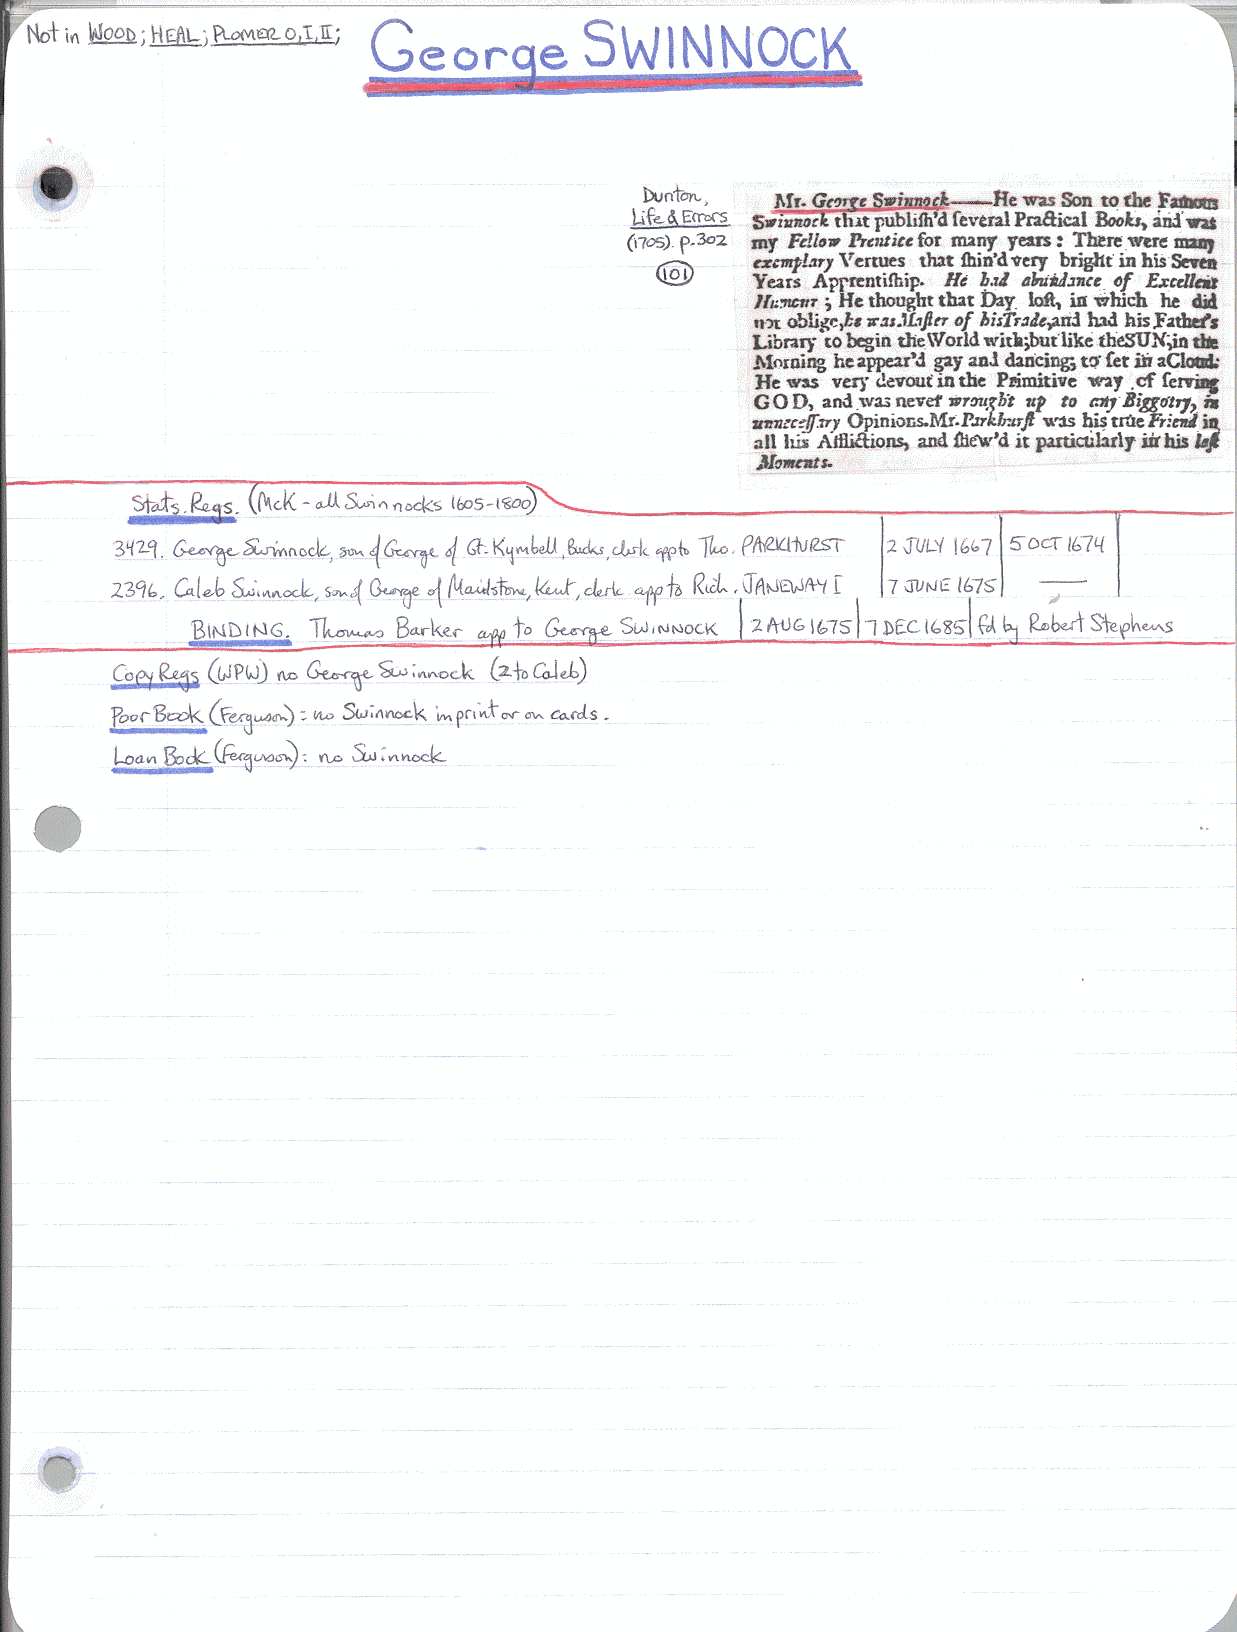 Not in WOOD; HEAL; PLOMER O, I, II;
George SWINNOCK
Dunton,
Life & Errors
(1705). p.302
101
Mr. George Swinnock——He was Son to the Famous
Swinnock that publiſh'd ſeveral Practical Books, and was
my Fellow Prentice for many years: There were many
exemplary Vertues that ſhin'd very bright in his Seven
Years Apprentiſhip. He had abundance of Excellent
Humour; He thought that Day loſt, in which he did
not oblige, he was Maſter of his Trade, and had his Father's
Library to begin the World with; but like the SUN, in the
Morning he appear'd gay and dancing; to ſet in a Cloud:
He was very devout in the Primitive way of ſerving
GOD, and was never wrought up to any Biggotry, in
unneceſſary Opinions. Mr. Parkhurſt was his true Friend in
all his Afflictions, and ſhew'd it particularly in his laſt
Moments.
Stats. Regs. (McK - all Swinnocks 1605-1800)
3429. George Swinnock, son of George of Gt. Kymbell, Bucks, clerk app to Tho. PARKHURST 2 JULY 1667 5 OCT 1674
2396. Caleb Swinnock, son of George of Maidstone, Kent, clerk app to Rich. JANEWAY I 7 JUNE 1675 —
BINDING. Thomas Barker app to George SWINNOCK 2 AUG 1675 7 DEC 1685 fd by Robert Stephens
Copy Regs (WPW) no George Swinnock (2 to Caleb)
Poor Book (Ferguson): no Swinnock in print or on cards.
Loan Book (Ferguson): no Swinnock